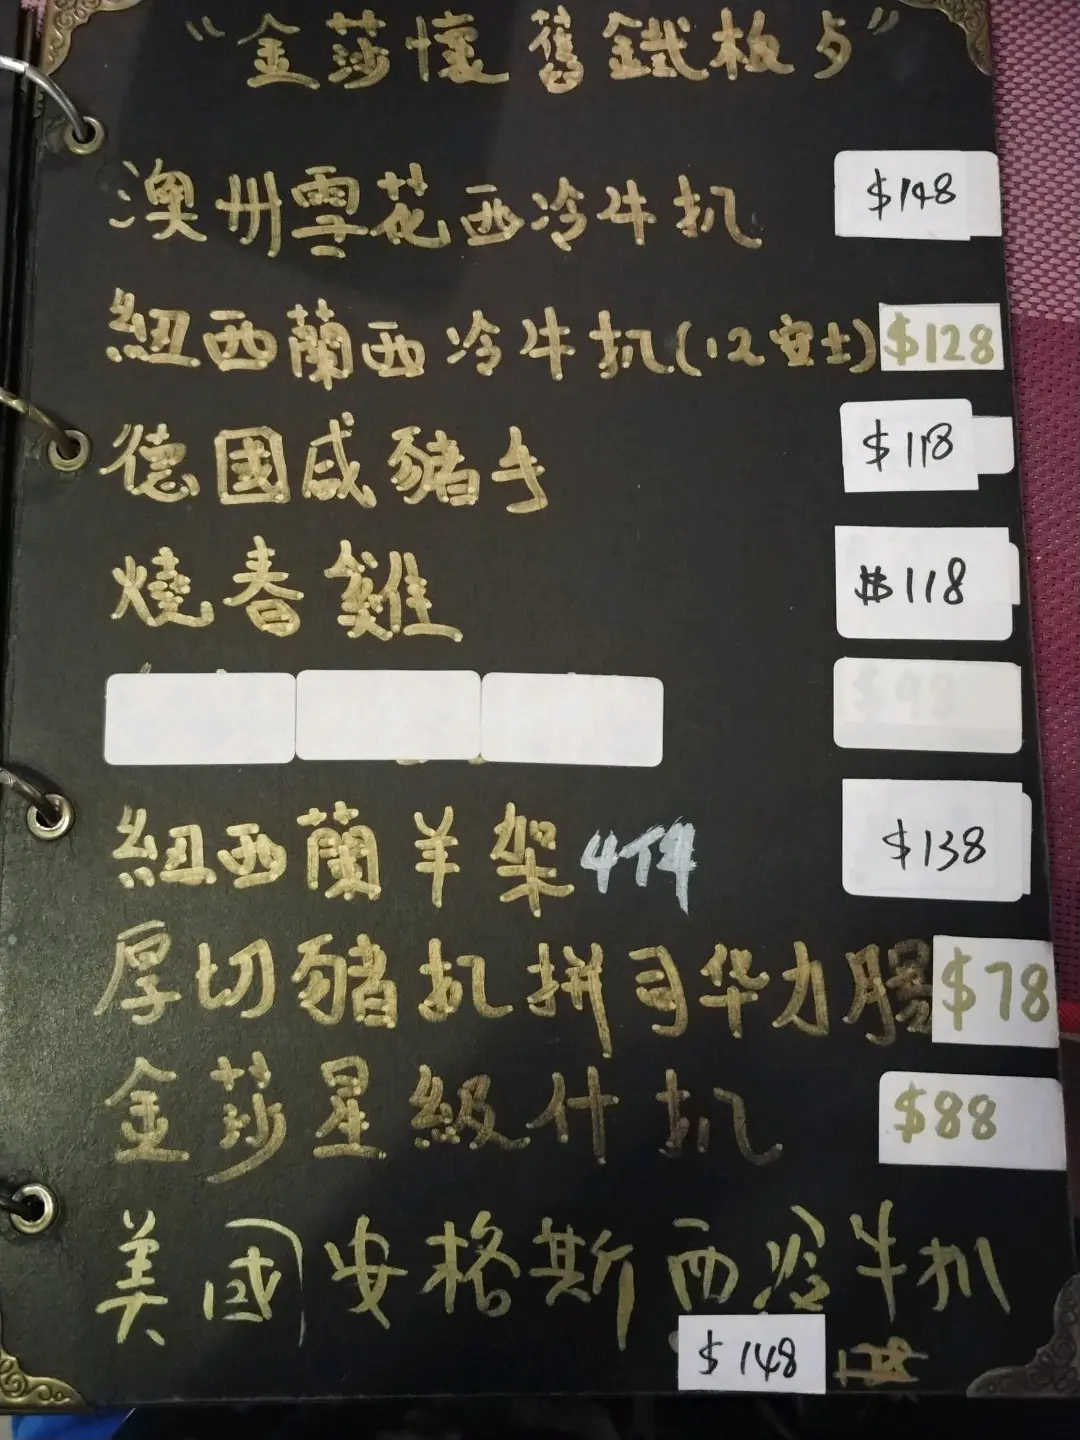 “金莎懷舊鐵板与”
澳州雪花西冷牛扒 $148
紐西蘭西冷牛扒(12安士) $128
德國咸豬手 $118
燒春雞 $118
$98
紐西蘭羊架4件 $138
厚切豬扒拼司华力腸 $78
金莎星級什扒 $88
美國安格斯西冷牛扒
$148